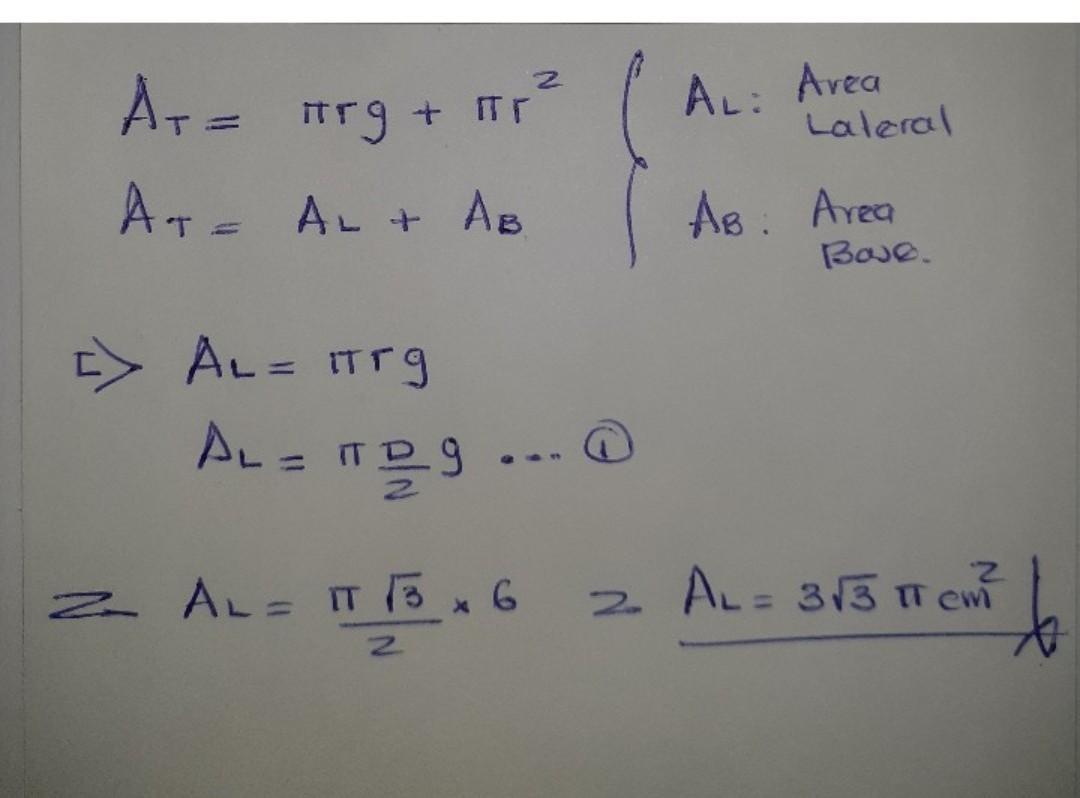 A_T = πrg + πr²
A_L: Area
Lateral
A_T = A_L + A_B
A_B: Area
Base.
⇒ A_L = πrg
A_L = π D/2 g .... ①
2 A_L = π√3/2 × 6 2 A_L = 3√3 π cm²